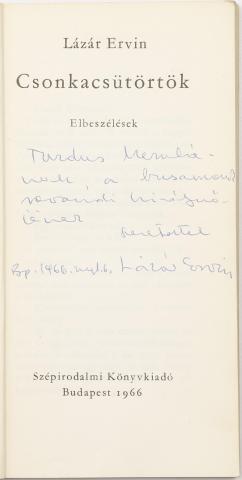 Lázár Ervin
Csonkacsütörtök
Elbeszélések
Turdus Merulá-
nak, a
királynő-
jének
szeretettel
Bp. 1966. Lázár Ervin
Szépirodalmi Könyvkiadó
Budapest 1966